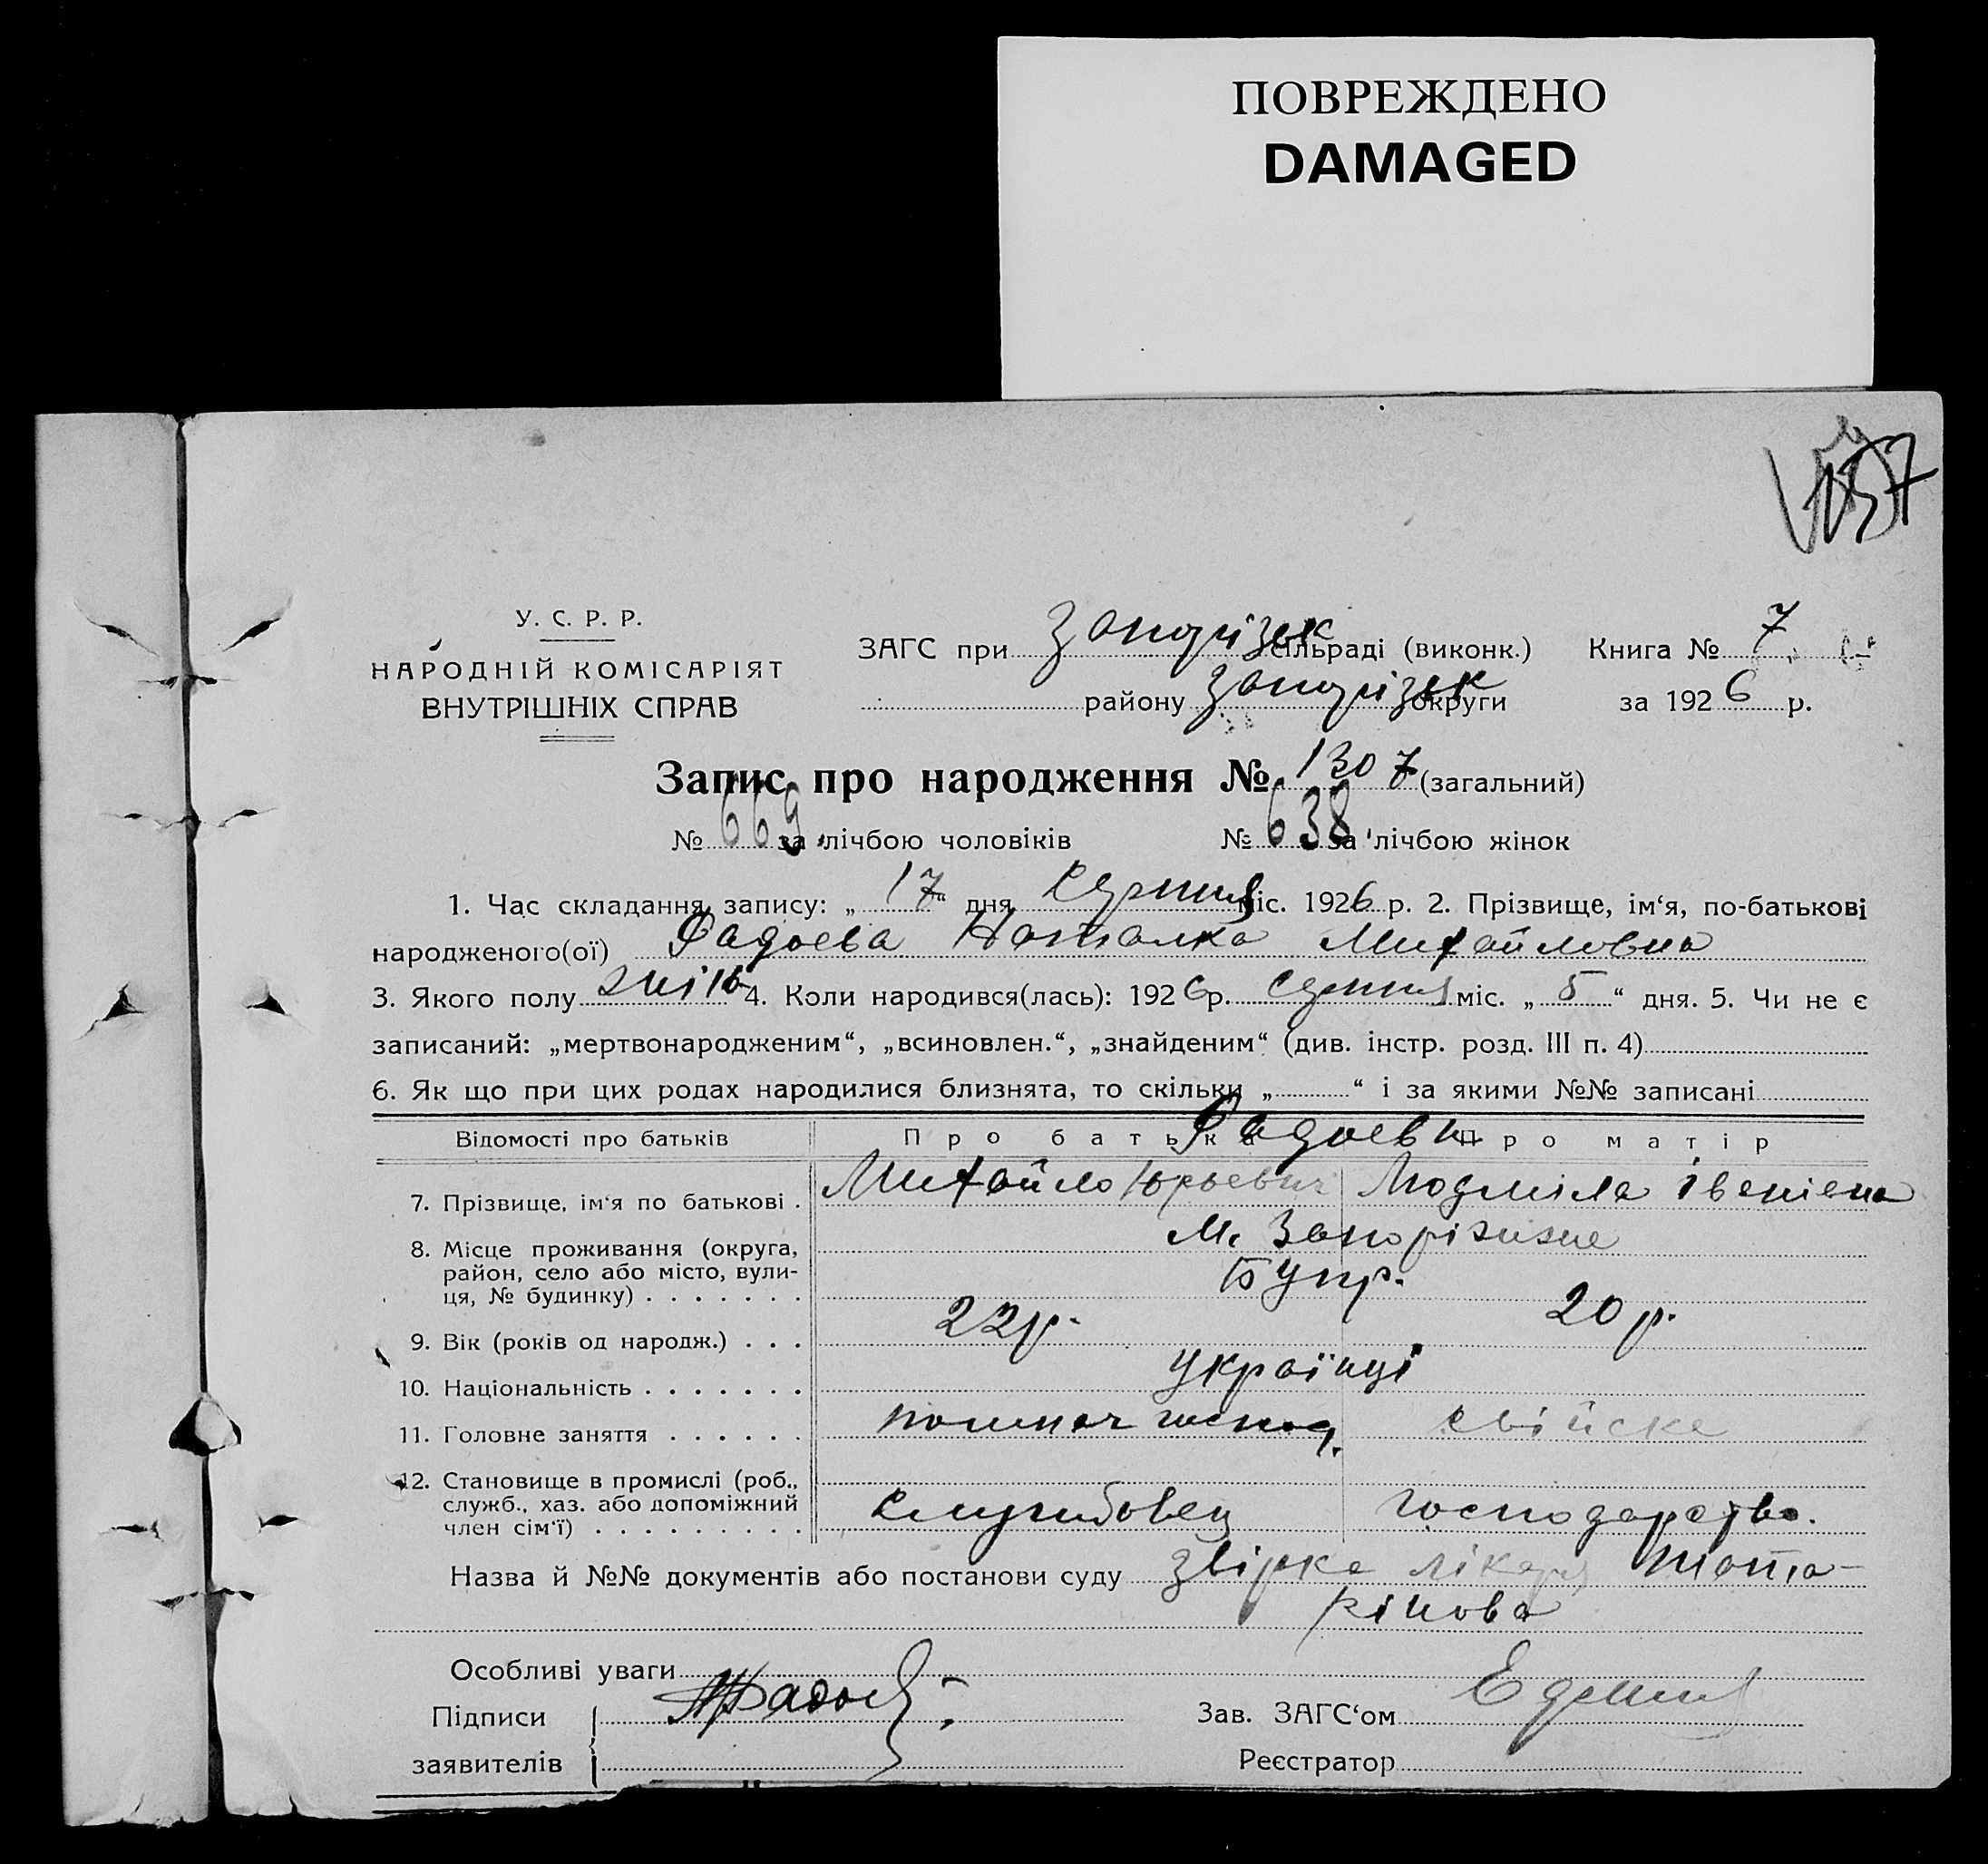 ПОВРЕЖДЕНО
DAMAGED
137
У. С. Р. Р.
НАРОДНІЙ КОМІСАРІЯТ
ВНУТРІШНІХ СПРАВ
ЗАГС при Запоріжск сільраді (виконк.) Книга № 7
району Запоріжск округи за 1926 р.
Запис про народження № 1307 (загальний)
№ 669 за лічбою чоловіків № 638 за лічбою жінок
1. Час складання запису: „17“ дня Серпня міс. 1926 р. 2. Прізвище, ім‘я, по-батькові
народженого(ої) Фадоєва Наталка Михайловна
3. Якого полу жіно 4. Коли народився(лась): 1926 р. серпня міс. „5“ дня. 5. Чи не є
записаний: „мертвонародженим“, „всиновлен.“, „знайденим“ (див. інстр. розд. III п. 4)
6. Як що при цих родах народилися близнята, то скільки „ “ і за якими №№ записані
Відомості про батьків Про батька Фадоєви Про матір
7. Прізвище, ім‘я по батькові . Михайло Юрьевич Людміла
8. Місце проживання (округа, район, село або місто, вулиця, № будинку) . . . . . . . М. Запоріжже
Бупр.
9. Вік (років од народж.) . . . 22 р. 20 р.
10. Національність . . . . . . . Українці
11. Головне заняття . . . . . . свійске
12. Становище в промислі (роб., служб., хаз. або допоміжний член сім‘ї) . . . . . . . . . службовец господарство.
Назва й №№ документів або постанови суду звірка лікаря
Особливі уваги
Підписи
заявителів
Зав. ЗАГС‘ом
Реєстратор